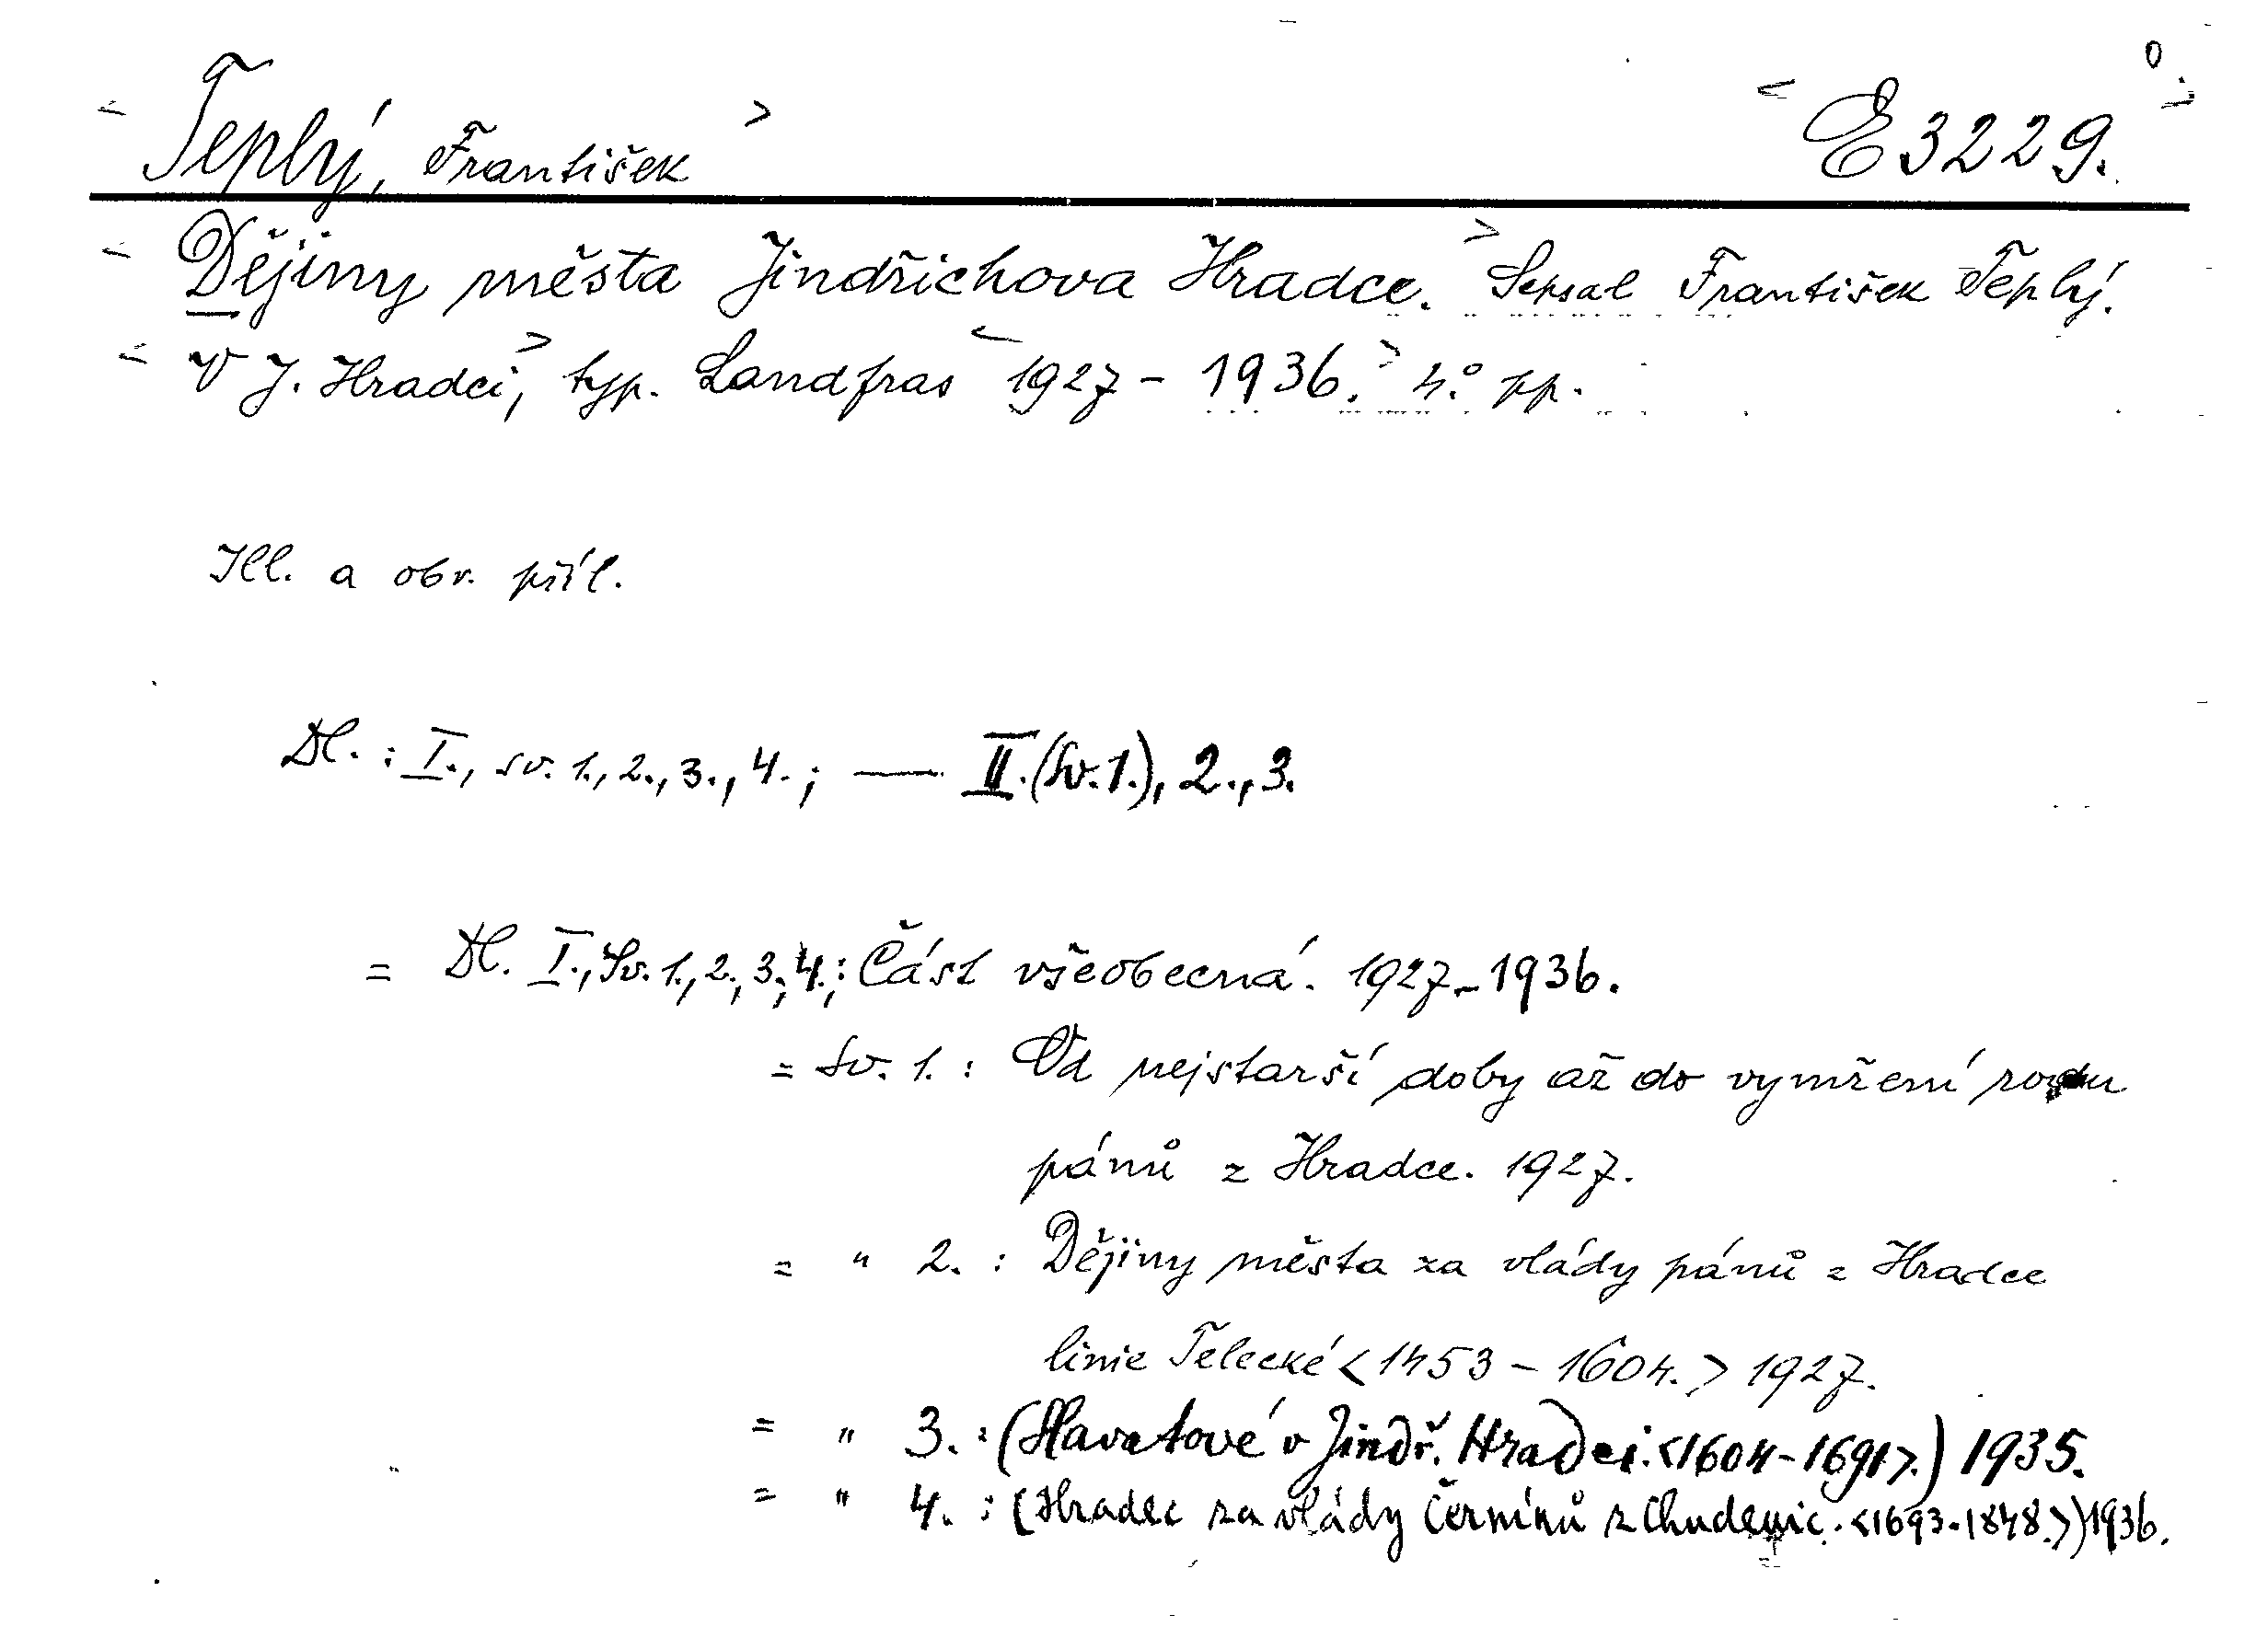 < Teplý, František > < E 3229. >
< Dějiny města Jindřichova Hradce. > Sepsal František Teplý.
< V J. Hradci, > typ. Landfras < 1927 - 1936. > 4.° pp.
Ill. a obr. příl.
Dl. : I., sv. 1., 2., 3., 4. ; — II. (Sv. 1.), 2., 3.
= Dl. I., Sv. 1., 2., 3., 4.; : Část všeobecná. 1927-1936.
= Sv. 1. : Od nejstarší doby až do vymření rodu
pánů z Hradce. 1927.
= " 2. : Dějiny města za vlády pánů z Hradce
linie Telecké < 1453 - 1604. > 1927.
= " 3. : (Slavatové v Jindř. Hradci. <1604-1691>.) 1935.
= " 4. : (Hradec za vlády Černínů z Chudenic. <1693-1848.>) 1936.